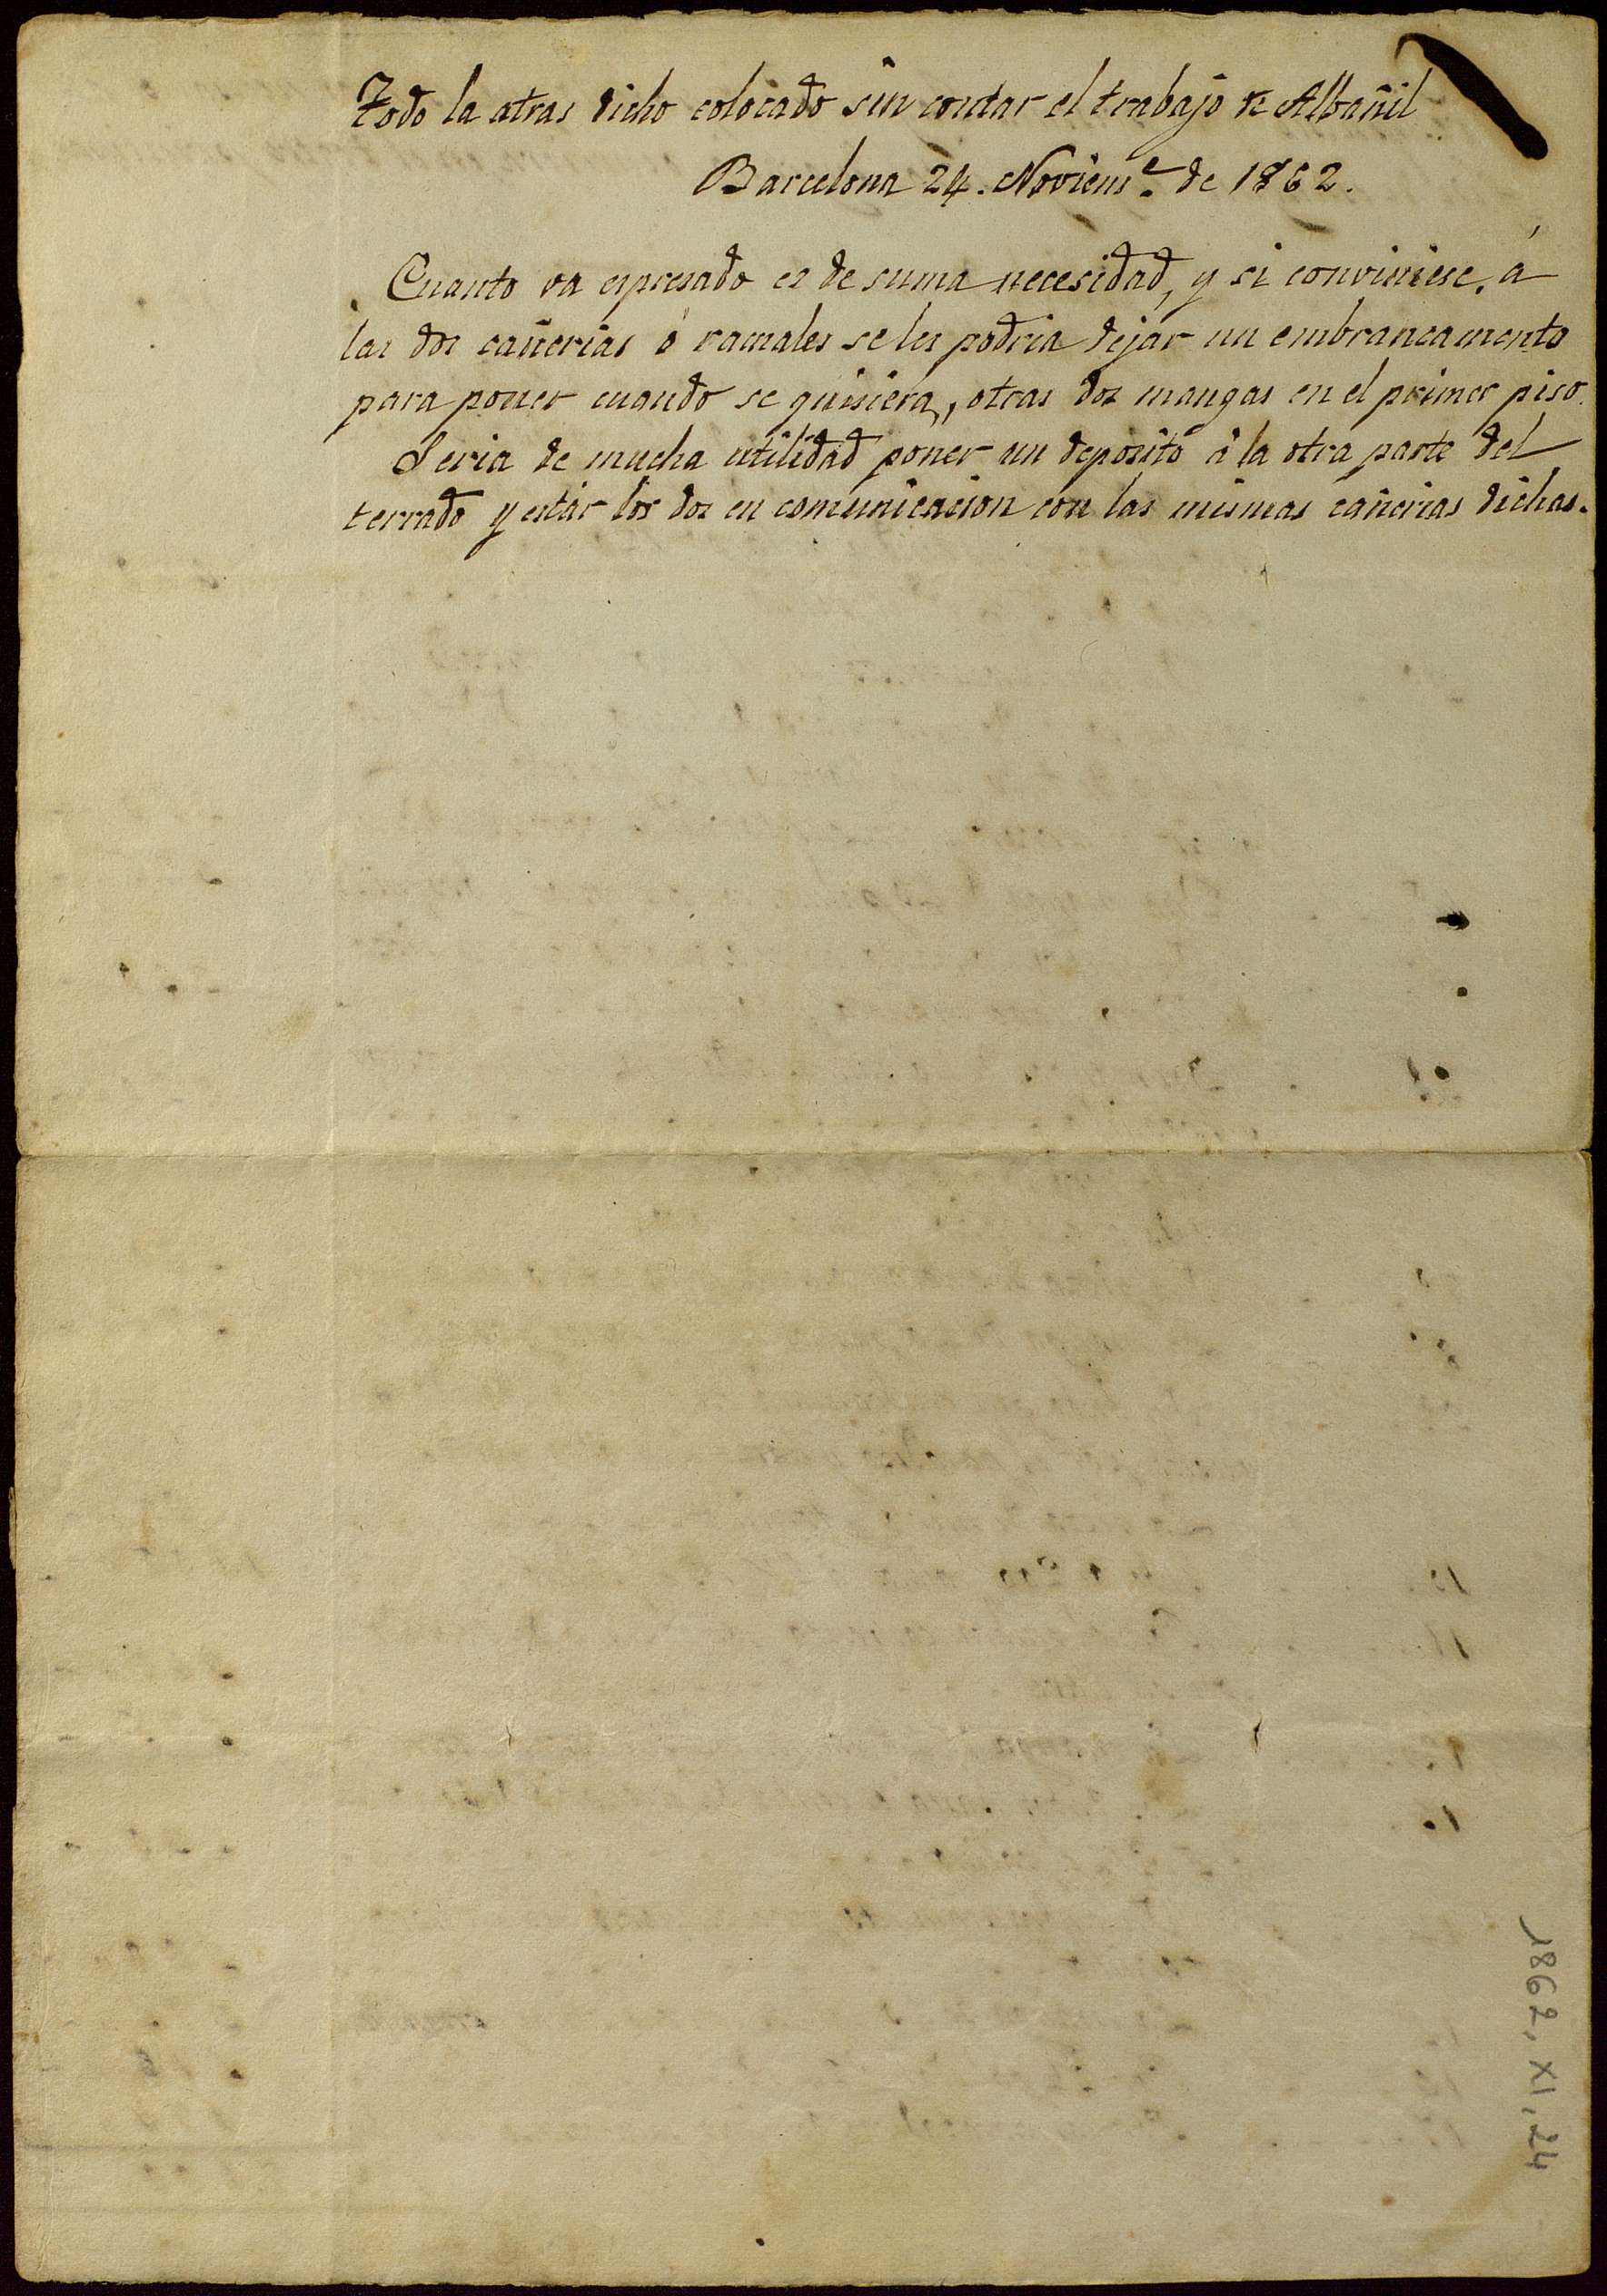 Todo la atras dicho colocado sin contar el trabajo de Albañil
Barcelona 24. Noviem.e de 1862.
Cuanto va espresado es de suma necesidad, y si conviniese, á
las dos cañerias ó ramales se les podria dejar un embrancamento
para poner cuando se quisiera, otras dos mangas en el primer piso.
Seria de mucha utilidad poner un deposito á la otra parte del
terrado y estár los dos en comunicacion con las mismas cañerias dichas.
1862, XI, 24